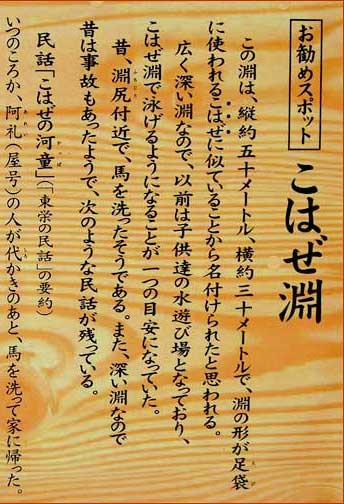 お勧めスポット
こはぜ淵
この淵は、縦約五十メートル、横約三十メートルで、淵の形が足袋
に使われるこはぜに似ていることから名付けられたと思われる。
広く深い淵なので、以前は子供達の水遊び場となっており、
こはぜ淵で泳げるようになることが一つの目安になっていた。
昔、淵尻付近で、馬を洗ったそうである。また、深い淵なので
昔は事故もあったようで、次のような民話が残っている。
民話「こはぜの河童」(「東栄の民話」の要約)
いつのころか、阿礼(屋号)の人が代かきのあと、馬を洗って家に帰った。